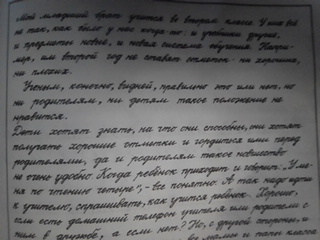 Мой младший брат учится во втором классе. У них всё
не так, как было у нас когда-то: и учебники другие,
и предметы новые, и новая система обучения. Напри-
мер, им второй год не ставят отметок - ни хороших,
ни плохих.
Учёным, конечно, видней, правильно это или нет, но
ни родителям, ни детям такое положение не
нравится.
Дети хотят знать, на что они способны, они хотят
получать хорошие отметки и гордиться ими перед
родителями, да и родителям такое новшество
не очень удобно. Когда ребёнок приходит и говорит: "У ме-
ня по чтению четыре", - все понятно. А так надо идти
к учителю, спрашивать, как учится ребёнок. Хорошо,
если есть домашний телефон учителя или родители с
ним в дружбе, а если нет? Но, с другой стороны, и
все мамы и папы класса